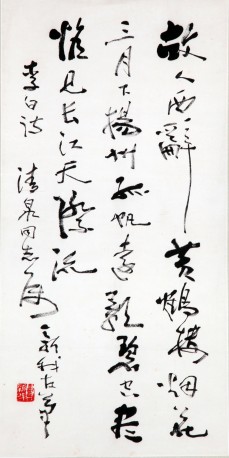 故人西辭黄鶴楼烟花
三月下揚州孤帆遠影碧空尽
惟见长江天際流
李白诗 清泉同志属
新我左笔